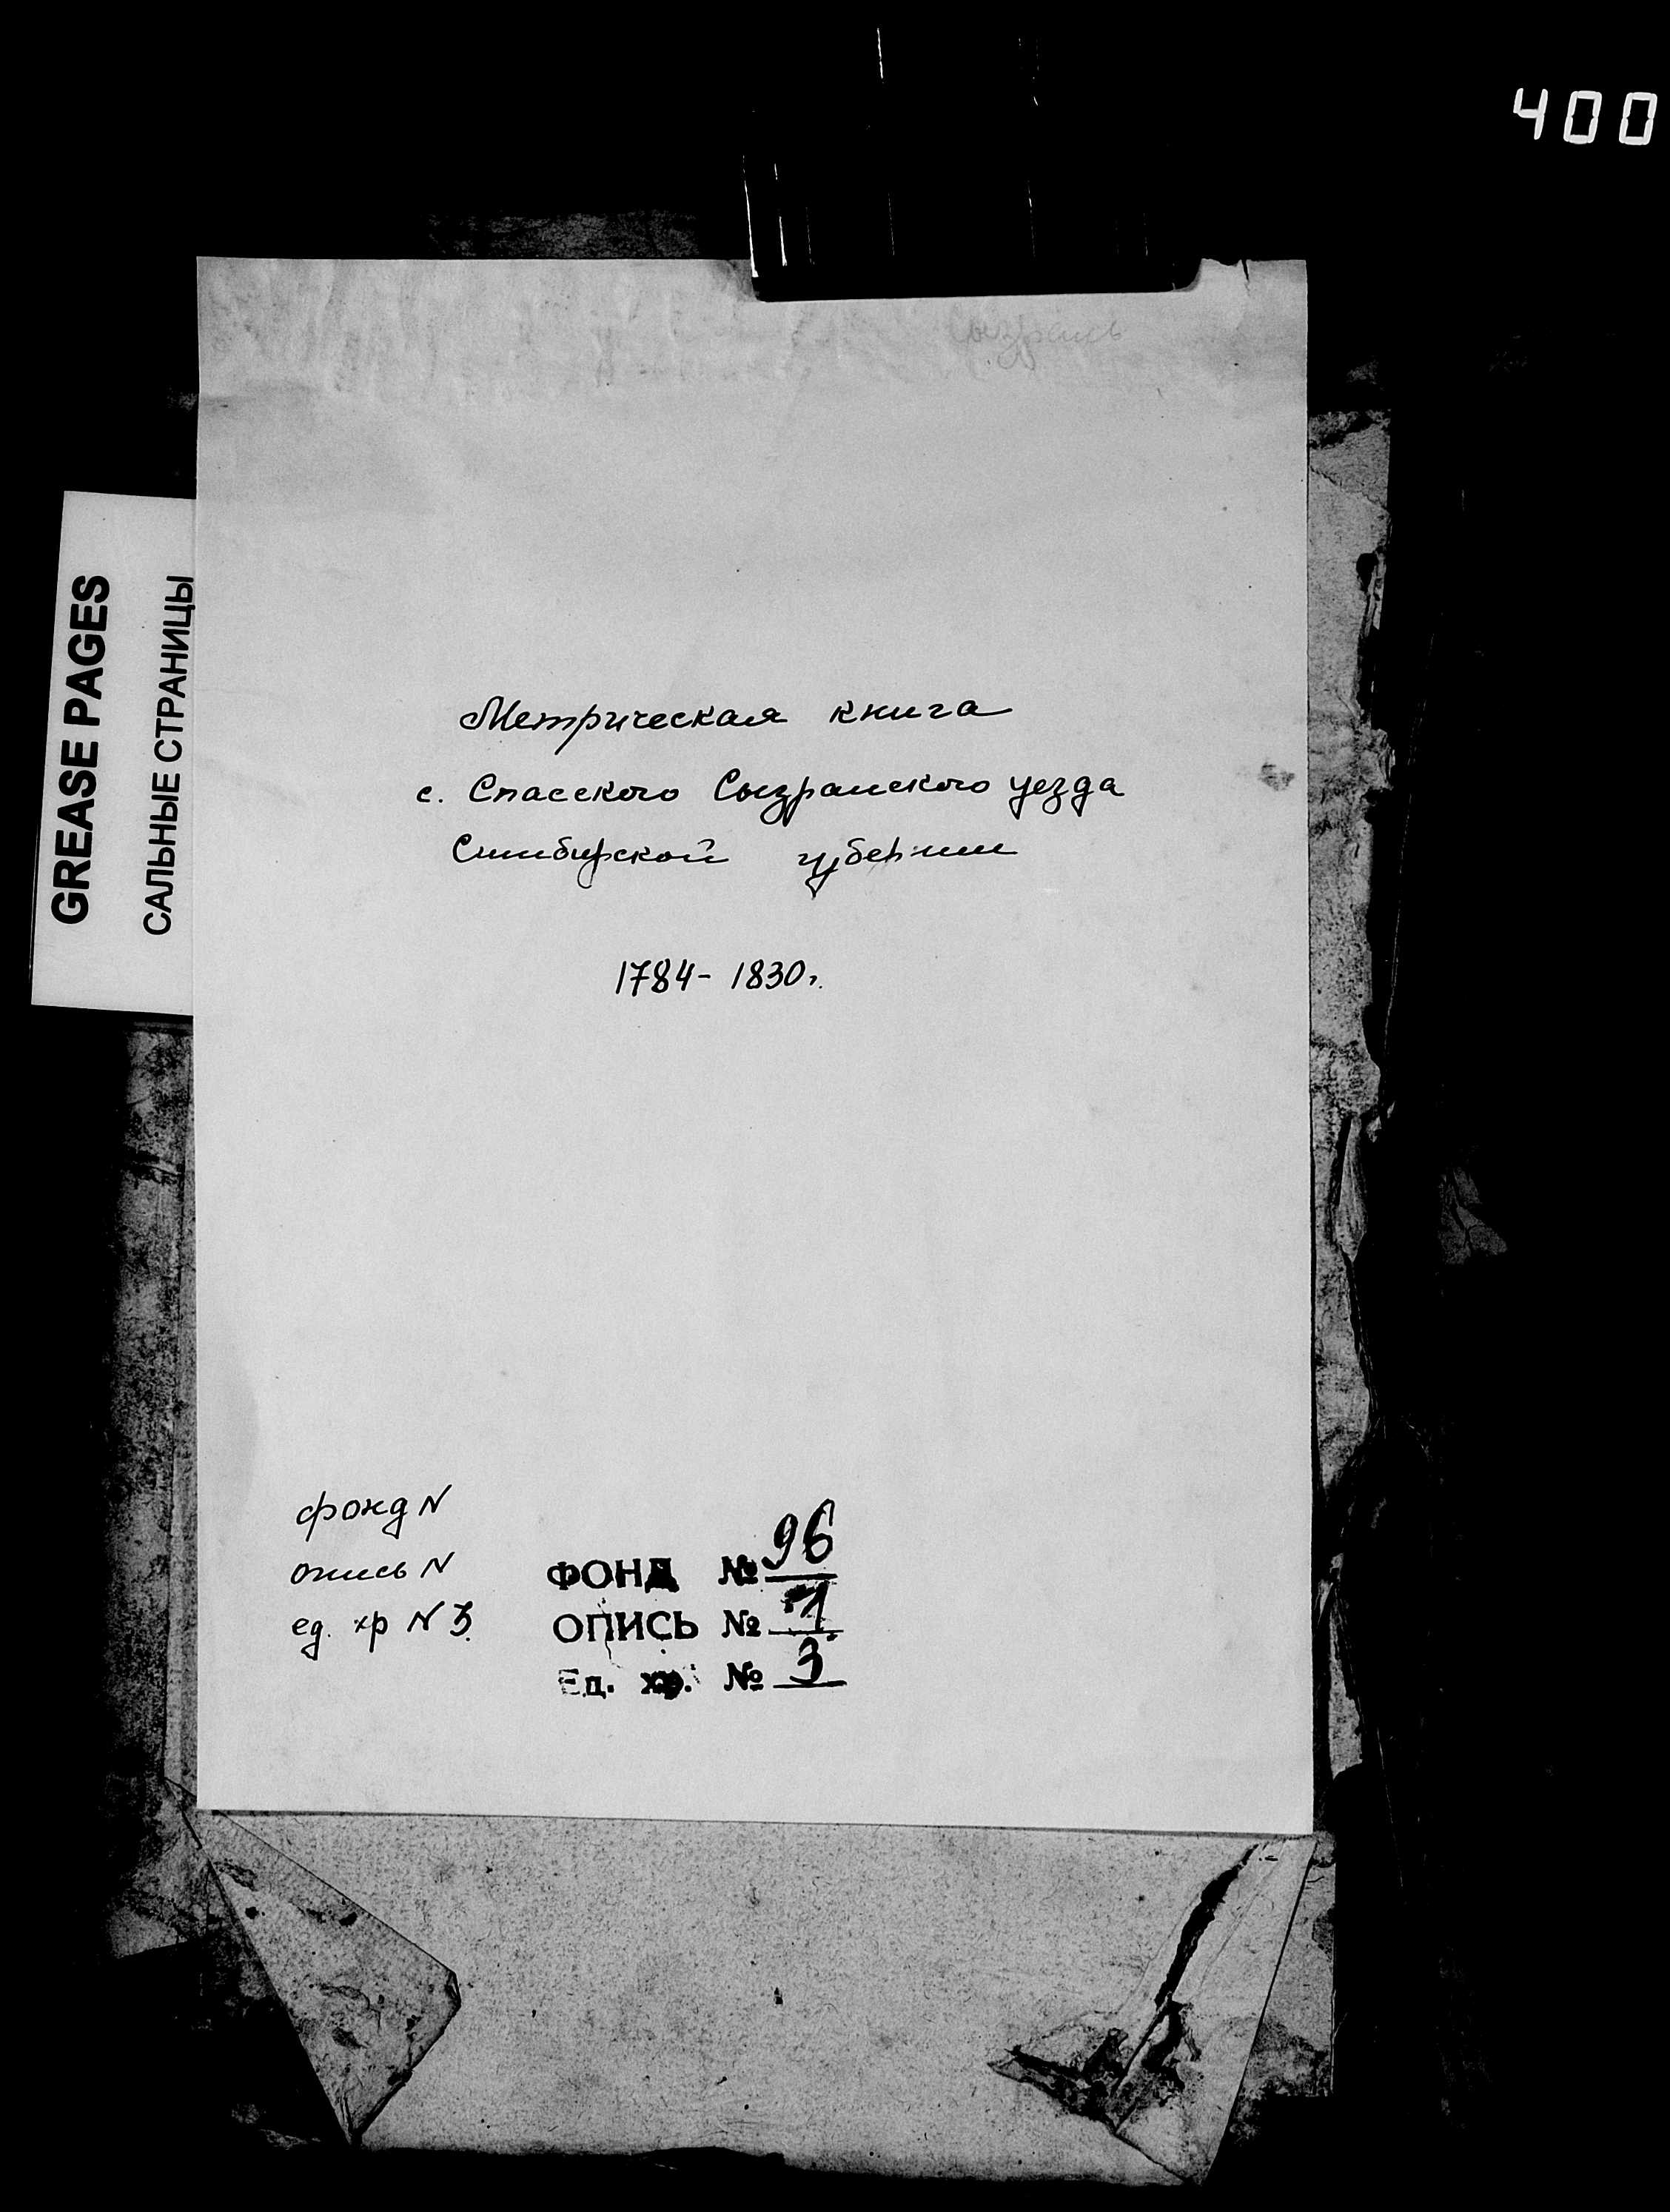 400
Сызрань
GREASE PAGES
САЛЬНЫЕ СТРАНИЦЫ
Метрическая книга
с. Спасского Сызранского уезда
Симбирской губернии
1784-1830г.
фонд N
опись N
ед. хр N 3
ФОНД № 96
ОПИСЬ № 1
Ед. хр. № 3